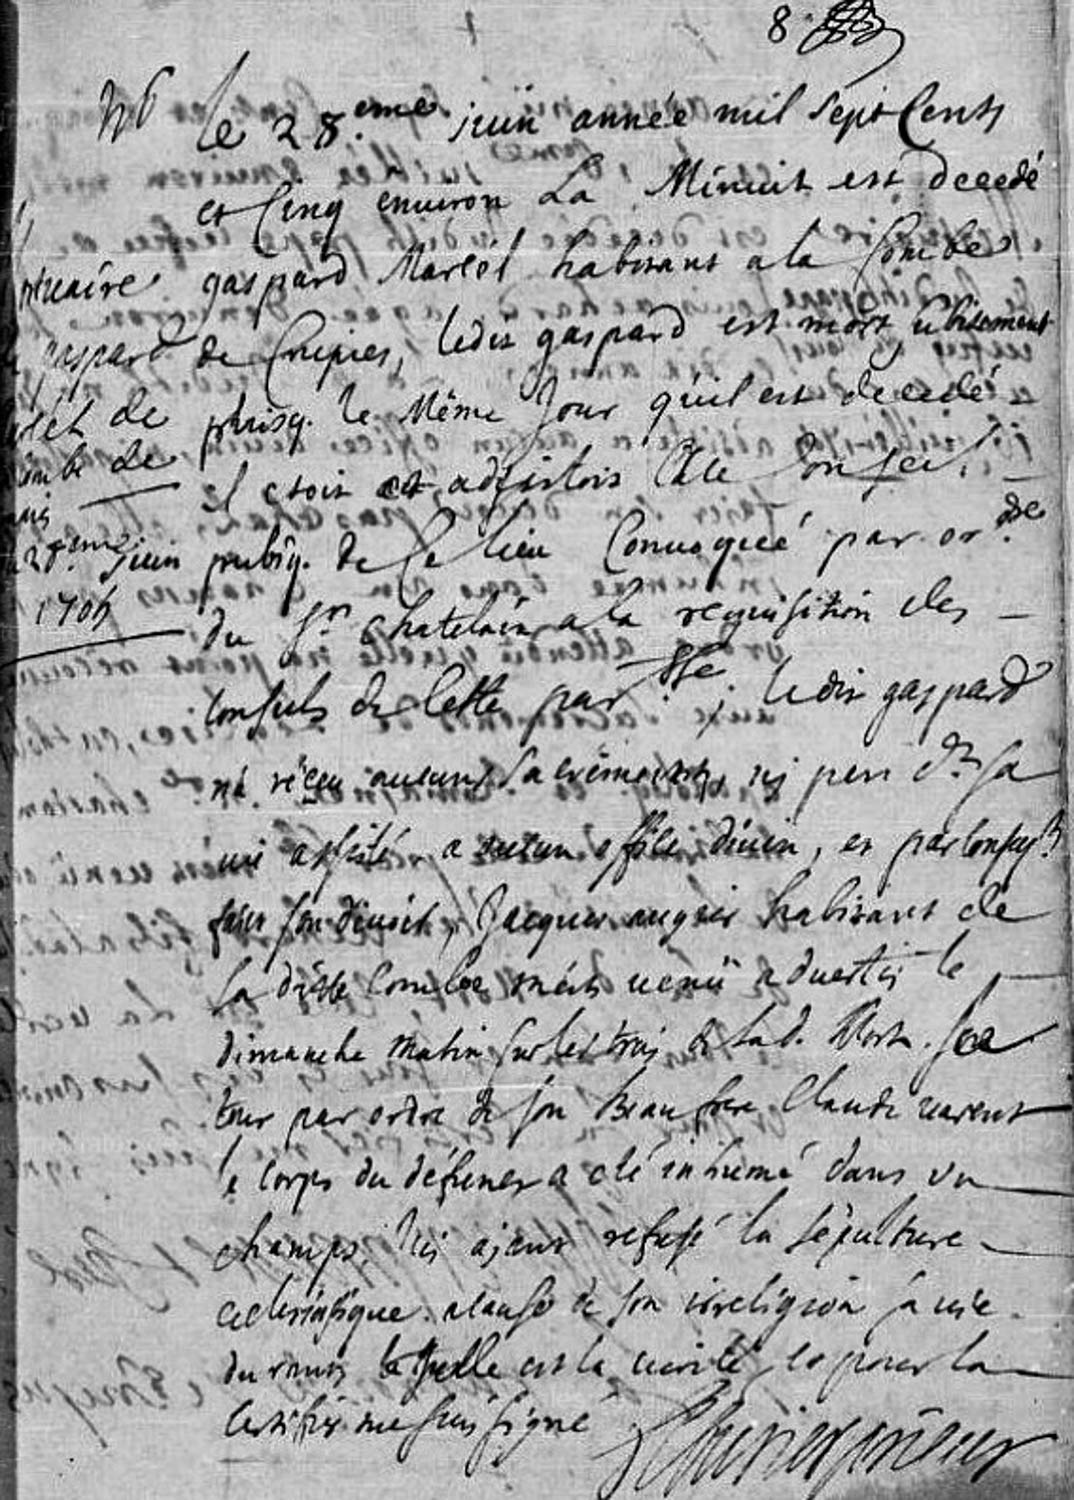 8
le 28.eme juin année mil sept Cents
et Cinq environ La Minuit est decedé
gaspard Martél habitant a la Combe
de Crupies, ledit gaspard est mort subitement
puisq. le Même Jour qu'il est decedé
il etoit et assistois a le Conseil
publiq. de Ce lieu Convoqué par or.dre
du Sr. Chatelain a la requisition des
Consuls de Cette par.sse, ledit gaspard
n'a réçeu aucuns sacréments, ny pen dt sa
vie assisté a aucun office divin, et par conseqt.
fait son devoir, Jacques augier habitant de
la ditte Combe m'est venü advertir le
dimanche matin sur les trois de lad. Mort.
par ordre de son Beaufrere Claude
le Corps du défunct a eté inhumé dans un
champs, luy ajant refusé la sépulture
eclesiastique a cause de son irreligion sa vie
durant laquelle est la verité, et pour la
Certifier me suis signé
gaspard
de
Combe de
28.eme juin
1705